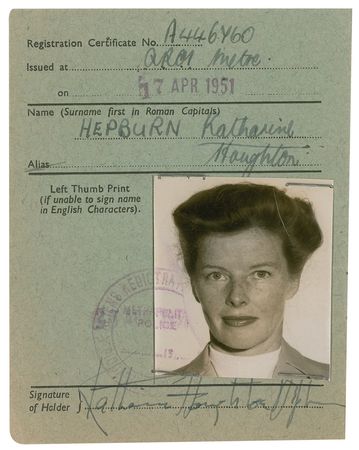 Registration Certificate No. A446460
Issued at ARO1 Metro.
on 17 APR 1951
Name (Surname first in Roman Capitals)
HEPBURN Katharine
Houghton
Alias
Left Thumb Print
(if unable to sign name
in English Characters).
METROPOLITAN
POLICE
13
Signature
of Holder
Katharine Houghton Hepburn